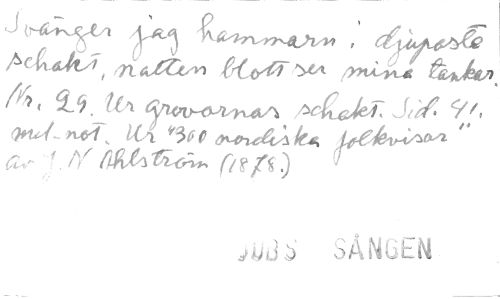 Svänger jag hammarn i djupaste
schakt, natten blott ser mina tankar.
Nr. 29. Ur gruvornas schakt. Sid. 41.
mel.-not. Ur "300 nordiska folkvisor"
av J. N Ahlström (1878.)
JUBS SÅNGEN